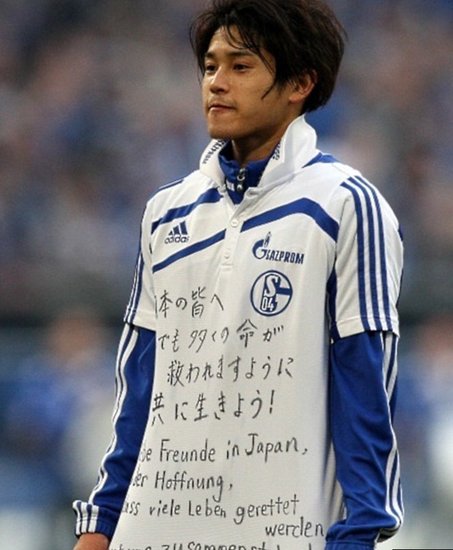 adidas
GAZPROM
S
04
本の皆へ
でも多くの命が
救われますように
共に生きよう!
be Freunde in Japan,
er Hoffnung,
ass viele Leben gerettet
werden